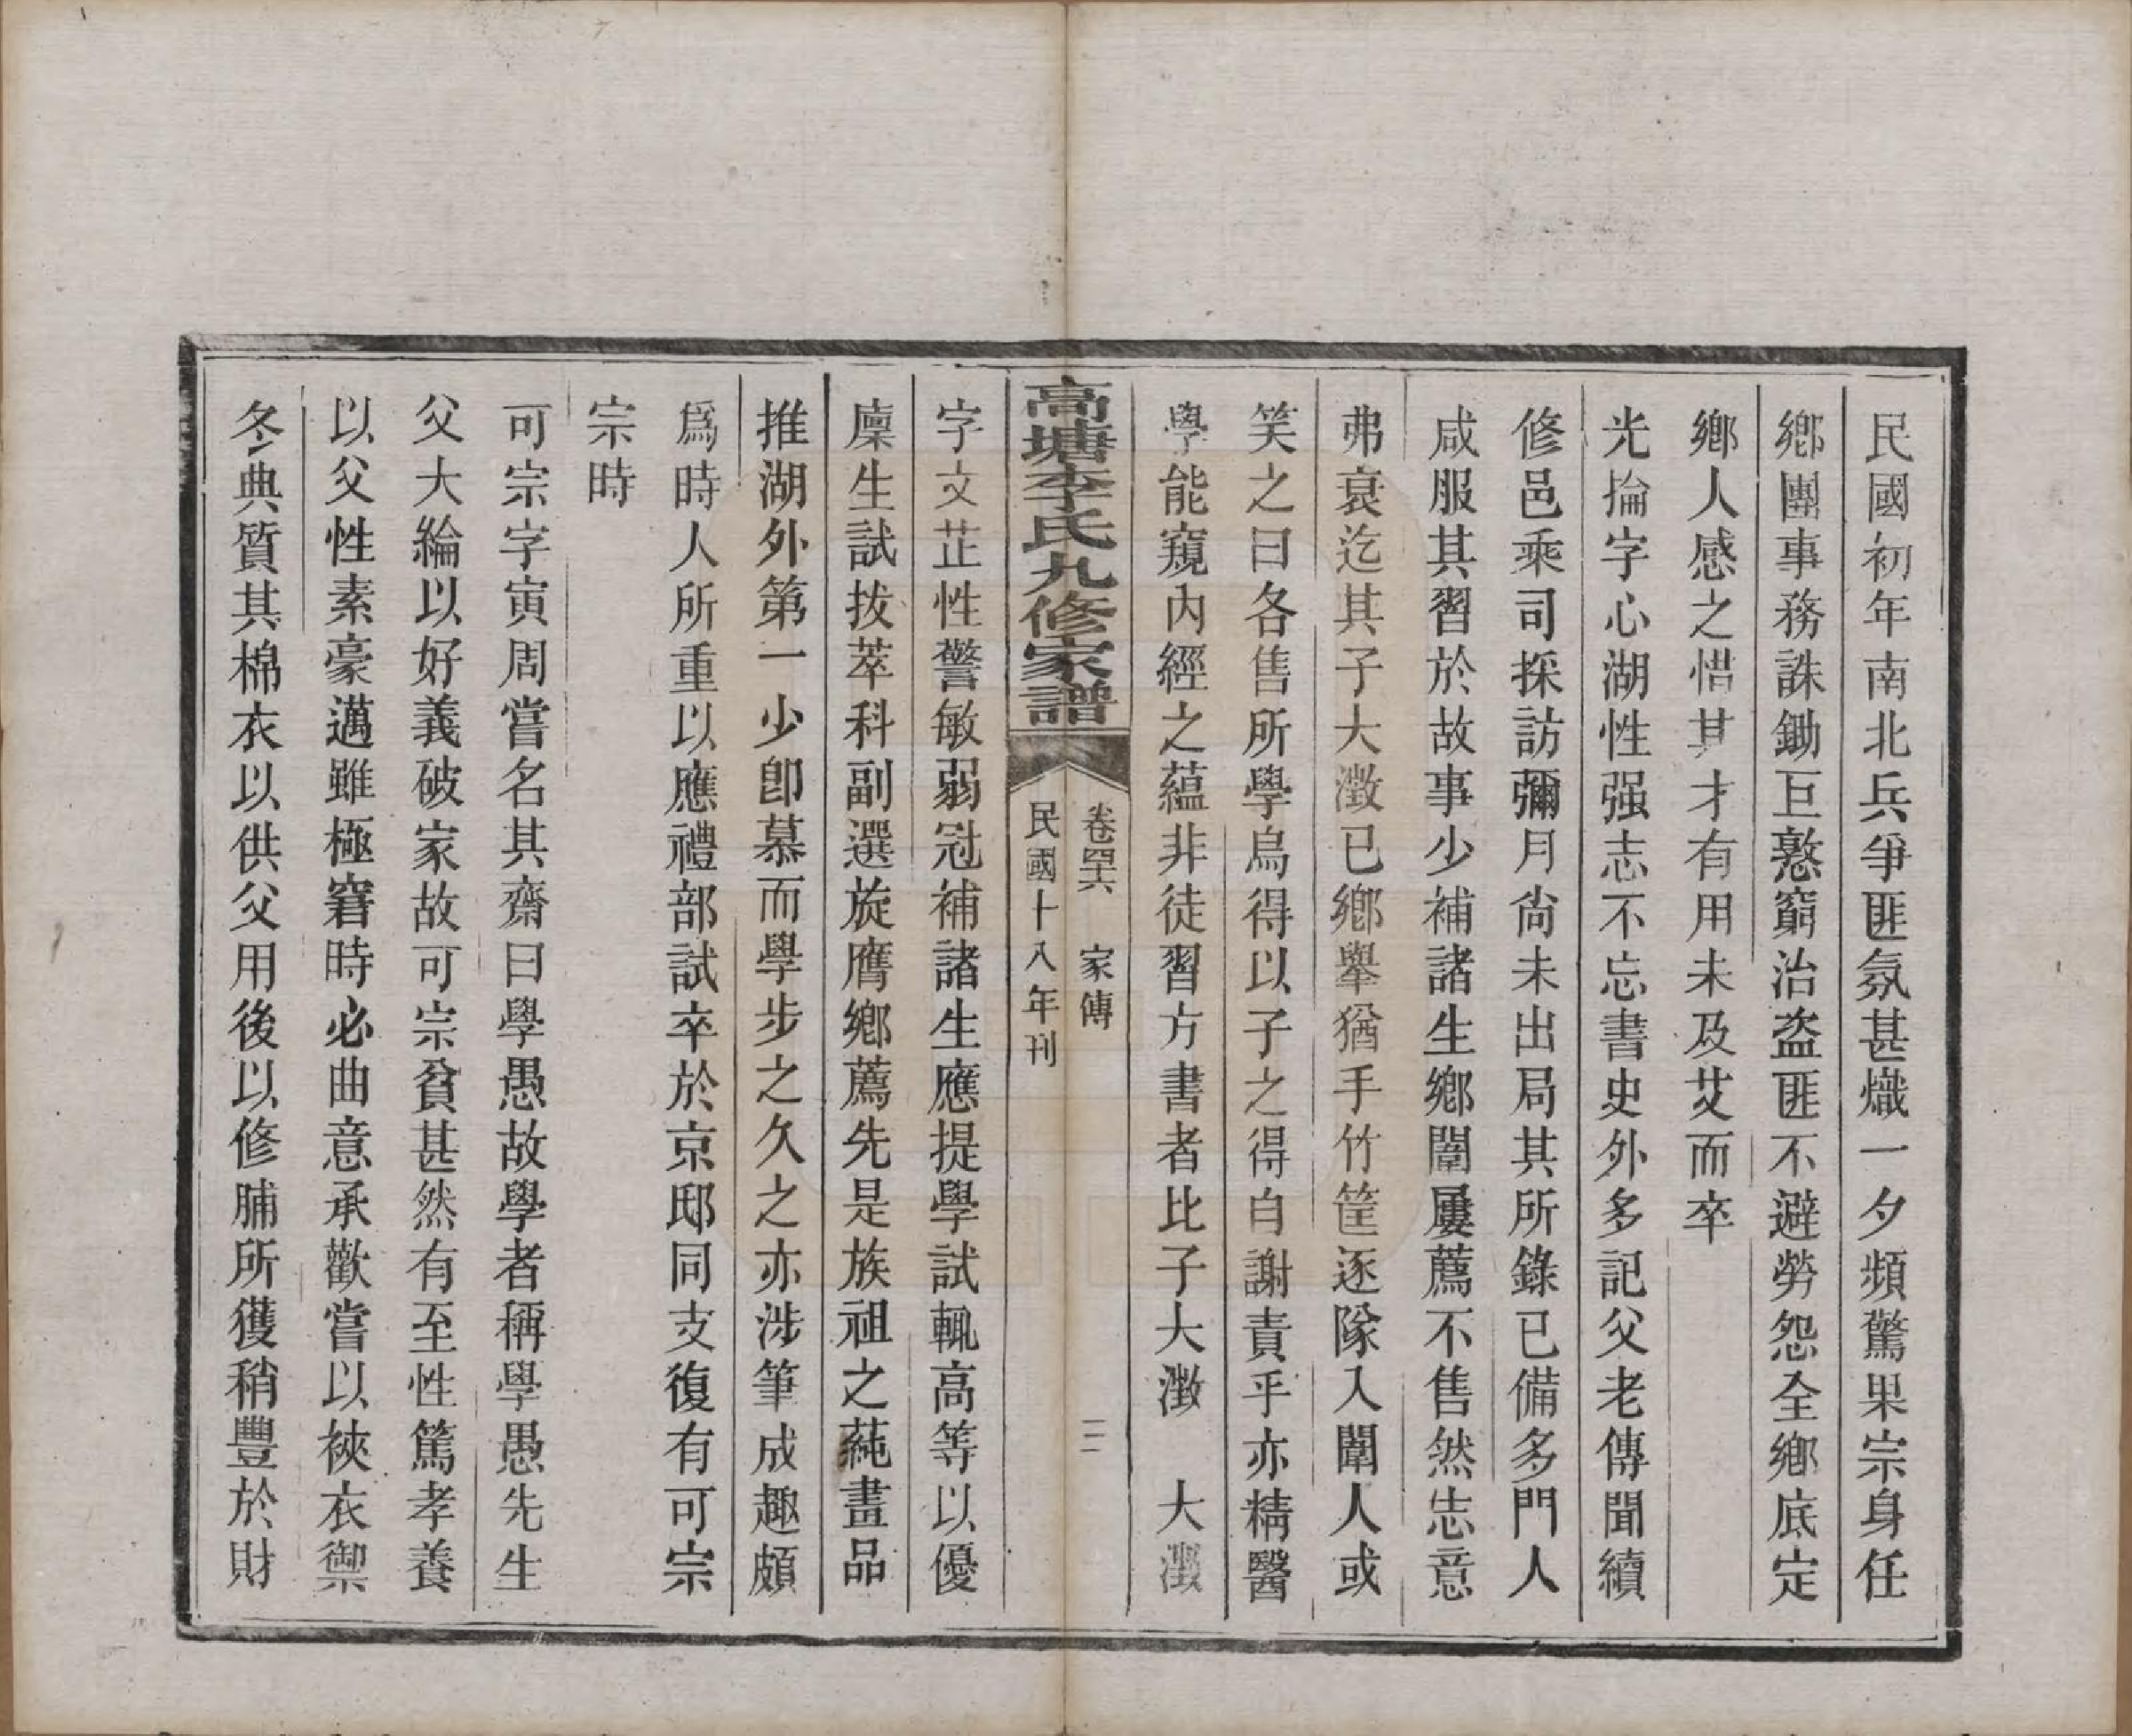 民國初年南北兵爭匪氛甚熾一夕頻驚果宗身任
鄉團事務誅鋤巨憝窮治盜匪不避勞怨全鄉底定
鄉人感之惜其才有用未及艾而卒
光掄字心湖性强志不忘書史外多記父老傳聞續
修邑乘司採訪彌月尙未出局其所錄已備多門人
咸服其習於故事少補諸生鄉闈屢薦不售然志意
弗衰迄其子大澂已鄉舉猶手竹筐逐隊入闈人或
笑之曰各售所學烏得以子之得自謝責乎亦精醫
學能窺內經之蘊非徒習方書者比子大澂　大瀓
高塘李氏九修家譜
卷卌六　家傳　二
民國十八年刊
字文芷性警敏弱冠補諸生應提學試輒高等以優
廩生試拔萃科副選旋膺鄉薦先是族祖之蒓畫品
推湖外第一少卽慕而學步之久之亦涉筆成趣頗
爲時人所重以應禮部試卒於京邸同支復有可宗
宗時
可宗字寅周嘗名其齋曰學愚故學者稱學愚先生
父大綸以好義破家故可宗貧甚然有至性篤孝養
以父性素豪邁雖極窘時必曲意承歡嘗以裌衣禦
冬典質其棉衣以供父用後以修脯所獲稍豐於財